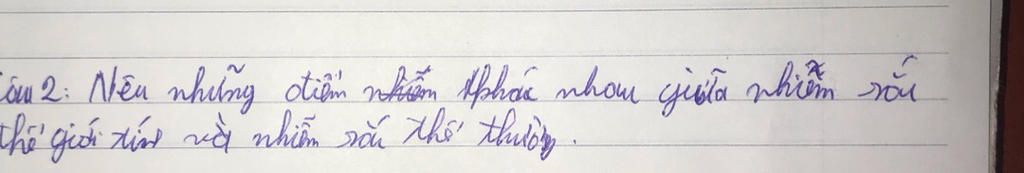 Câu 2: Nêu những điểm khác nhau giữa nhiễm sắc
thể giới tính và nhiễm sắc thể thường.